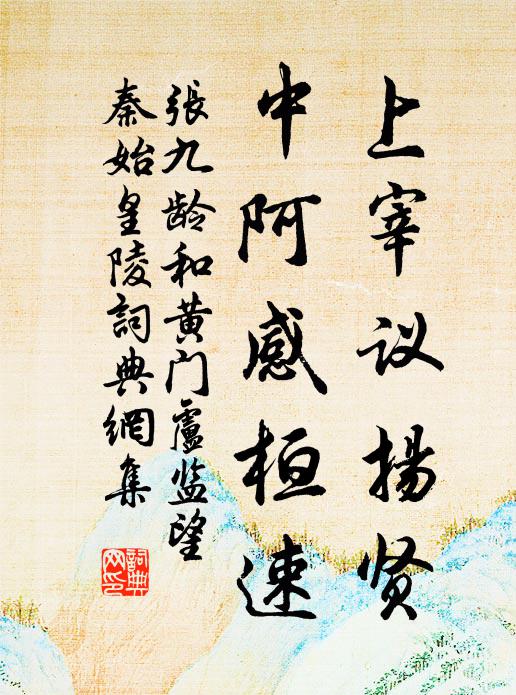 上宰议揚贤
中阿感桓速
張九龄和黄门盧监望
秦始皇陵詞典網集
詞典
网印